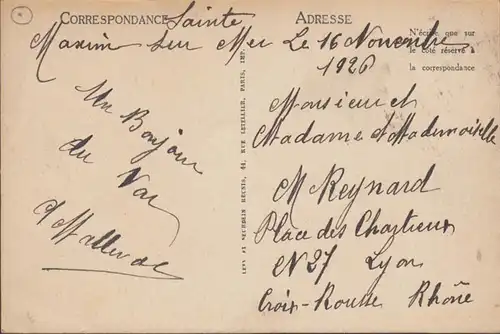 CORRESPONDANCE
ADRESSE
Sainte
Maxim sur Mer Le 16 Novembre
1926
N'écrire que sur
le côté réservé à
la correspondance
Un Bonjour
du Var
Monsieur et
Madame et Mademoiselle
M Reynard
Place des Chartreux
N 27 Lyon
Croix-Rousse Rhône
44, RUE LETELLIER, PARIS, IMP.